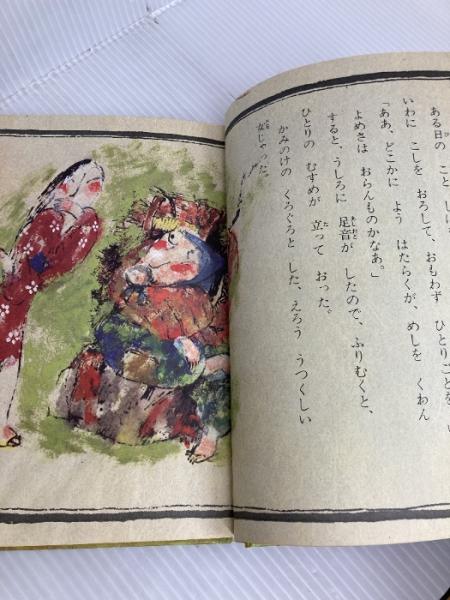 ある日の こと し
いわに こしを おろして、おもわず ひとりごとを
「ああ、どこかに よう はたらくが、めしを くわん
よめさは おらんものかなあ。」
すると、うしろに 足音が したので、ふりむくと、
ひとりの むすめが 立って おった。
かみのけの くろぐろと した、えろう うつくしい
女じゃった。